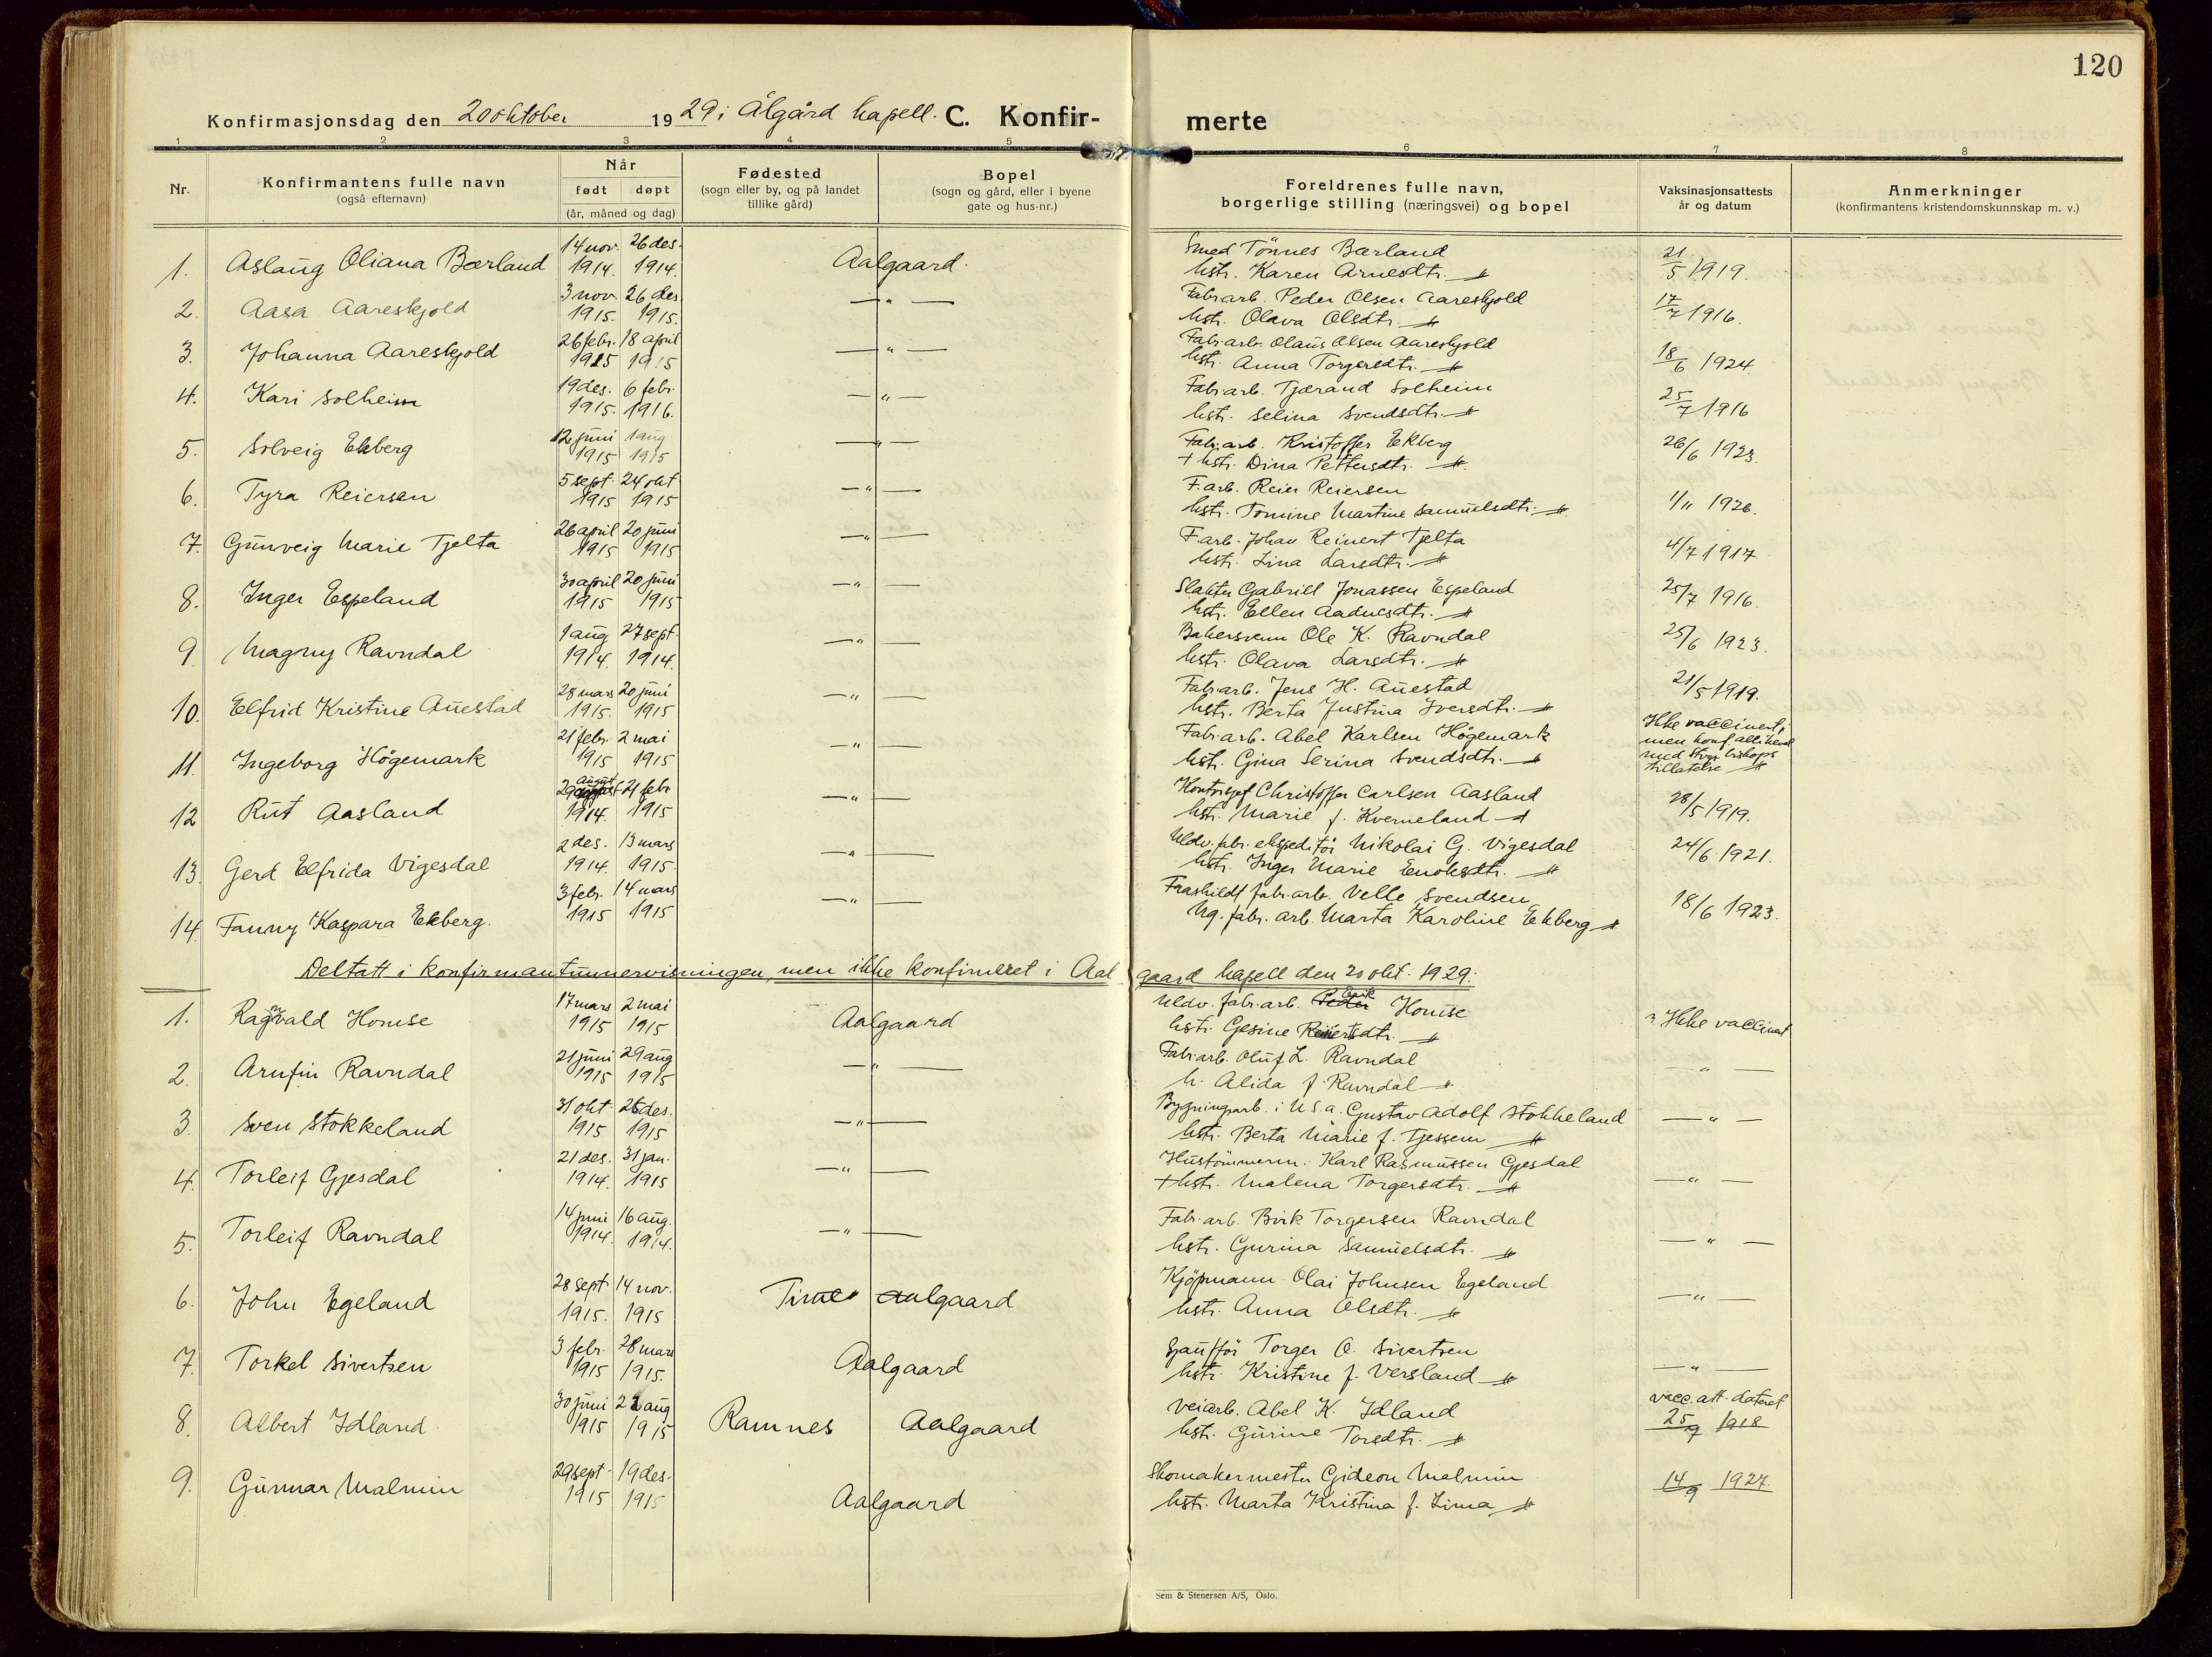 120
Konfirmasjonsdag den 20 oktober 1929 i Ålgård kapell. C. Konfir- merte
1 2 3 4 5 6 7 8
Nr.
Konfirmantens fulle navn
(også efternavn)
Når
født døpt
(år, måned og dag)
Fødested
(sogn eller by, og på landet
tillike gård)
Bopel
(sogn og gård, eller i byene
gate og hus-nr.)
Foreldrenes fulle navn,
borgerlige stilling (næringsvei) og bopel
Vaksinasjonsattests
år og datum
Anmerkninger
(konfirmantens kristendomskunnskap m. v.)
14 nov. 26 des. Smed Tönnes Bærland 21
1. Aslaug Oliana Bærland 1914. 1914. Aalgaard. hstr. Karen Arnesdtr. —〃 5 1919.
3 nov. 26 des. Fabr.arb. Peder Olsen Aareskjold
2. Aasa Aareskjold 1915. 1915. —〃— hstr. Olava Olsdtr. —〃 17/7 1916.
26 febr. 18 april Fabr.arb. Olaus Olsen Aareskjold
3. Johanna Aareskjold 1915 1915 —〃— hstr. Anna Torgersdtr. —〃 18/6 1924.
19 des. 6 febr. Fabr.arb. Tjærand Solheim
4. Kari Solheim 1915. 1916. —〃— hstr. Selina Svendsdtr. —〃 25/7 1916
12 juni 1 aug. Fabr.arb. Kristoffer Ekberg
5. Solveig Ekberg 1915 1915 —〃— + hstr. Dina Pettersdtr. —〃 26/6 1923.
5 sept. 24 okt F.arb. Reier Reiersen
6. Tyra Reiersen 1915 1915 —〃— hstr. Tomine Martine Samuelsdtr. —〃 1/11 1926.
26 april 20 juni F.arb. Johan Reinert Tjelta
7. Gunveig Marie Tjelta 1915 1915 —〃— hstr. Lina Larsdtr. —〃 4/7 1917
30 april 20 juni Slakter Gabriel Jonassen Espeland
8. Inger Espeland 1915 1915 —〃— hstr. Ellen Aadnesdtr. —〃 25/7 1916.
1 aug 27 sept. Bakersvenn Ole K. Ravndal
9. Magny Ravndal 1914. 1914. —〃— hstr. Olava Larsdtr. —〃 25/6 1923.
28 mars 20 juni Fabr.arb. Jens H. Auestad
10. Elfrid Kristine Auestad 1915. 1915 —〃— hstr. Berta Justina Iversdtr. —〃 21/5 1919.
21 febr. 2 mai Fabr.arb. Abel Karlsen Högemark Ikke vaccinert,
11. Ingeborg Högemark 1915 1915 —〃— hstr. Gina Serina Svendsdtr. —〃 men konf. allikevel
med biskops
tillatelse —〃
29 august 21 febr. Kontorsjef Christoffer Carlsen Aasland
12 Rut Aasland 1914. 1915 —〃— hstr. Marie f. Kverneland —〃 28/5 1919.
2 des. 13 mars Uldv. fabr. ekspeditör Nikolai G. Vigesdal
13. Gerd Elfrida Vigesdal 1914. 1915. —〃— hstr. Inger Marie Enoksdtr. —〃 24/6 1921.
3 febr. 14 mars Fraskildt fabr.arb. Velle Svendsen
14. Fanny Kaspara Ekberg. 1915 1915 —〃— Ug. fabr. arb. Marta Karoline Ekberg —〃 18/6 1923.
Deltatt i konfirmantunnervisningen, men ikke konfirmeret i Aalgaard kapell den 20 okt. 1929.
17 mars 2 mai Uldv. fabr.arb. Homse
1. Ragnvald Homse 1915 1915 Aalgaard hstr. Gesine Reinertsdtr. —〃 Ikke vaccinert
21 juni 29 aug Fabr.arb. Oluf L. Ravndal
2. Arnfin Ravndal 1915 1915 —〃— h. Alida f. Ravndal —〃 —〃—
31 okt. 26 des. Bygningsarb. i U.S.a. Gustav Adolf Stokkeland
3. Sven Stokkeland 1915 1915 —〃— hstr. Berta Marie f. Tjessem —〃 —〃—
21 des. 31 jan. Hustömmerm. Karl Rasmussen Gjesdal
4. Torleif Gjesdal 1914. 1915 —〃— + hstr. Malena Torgersdtr. —〃 —〃—
14 juni 16 aug. Fabr.arb. Birk Torgersen Ravndal
5. Torleif Ravndal 1914. 1914. —〃— hstr. Gurina Samuelsdtr. —〃 —〃—
28 sept. 14 nov. Kjöpmann Olai Johnsen Egeland
6. John Egeland 1915. 1915 Time Aalgaard hstr. Anna Olsdtr. —〃 —〃—
3 febr. 28 mars Sjaufför Torger O. Sivertsen
7. Torkel Sivertsen 1915 1915. Aalgaard hstr. Kristine f. Versland —〃 —〃—
30 juni 22 aug Veiarb. Abel K. Idland vacc. att. dateret
8. Albert Idland. 1915 1915 Ramnes Aalgaard hstr. Gurine Torsdtr. —〃 25/9 1918
29 sept. 19 des. Skomakermester Gideon Malmin
9. Gunnar Malmin 1915 1915 Aalgaard hstr. Marta Kristina f. Lima —〃 14/9 1927.
Sem & Stenersen A/S, Oslo.